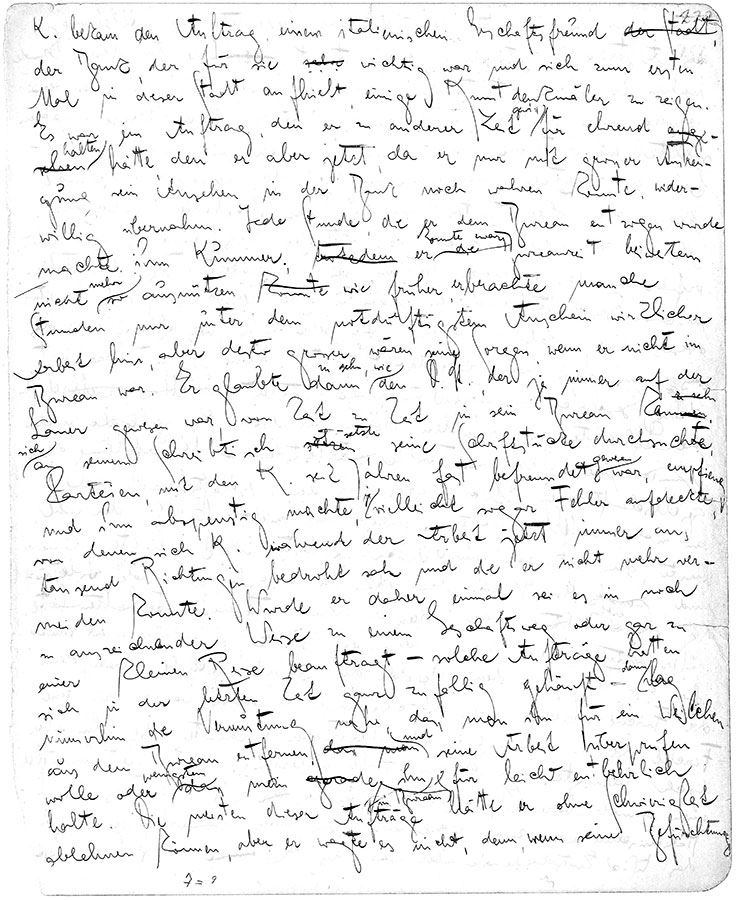 K. bekam den Auftrag einem italienischen Geschäftsfreund der Stadt,
der Bank, der für sie sehr wichtig war und sich zum ersten
Mal in dieser Stadt aufhielt, einige Kunstdenkmäler zu zeigen.
Es war ein Auftrag, den er zu anderer Zeit gewiss für ehrend
halten hätte, den er aber jetzt, da er nur mit grosser Anstren-
gung sein Ansehen in der Bank noch wahren konnte, wider-
willig übernahm. Jede Stunde, die er dem Bureau entzogen wurde
machte ihm Kummer; trotzdem er konnte zwar die Bureauzeit beiweitem
nicht mehr so ausnützen konnte wie früher, er brachte manche
Stunden nur unter dem notdürftigsten Anschein wirklicher
Arbeit hin, aber desto grösser waren seine Sorgen, wenn er nicht im
Bureau war. Er glaubte dann zu sehn, wie den D. St., der ja immer auf der
Lauer gewesen war, von Zeit zu Zeit in sein Bureau kam,
sich an seinem Schreibtisch setzte seine Schriftstücke durchsuchte,
Parteien, mit den K. seit Jahren fast befreundet gewesen war, empfieng
und ihm abspenstig machte, vielleicht sogar Fehler aufdeckte,
von denen sich K. während der Arbeit jetzt immer aus
tausend Richtungen bedroht sah und die er nicht mehr ver-
meiden konnte. Wurde er daher einmal sei es in noch
so auszeichnender Weise zu einem Geschäftsweg oder gar zu
einer kleinen Reise beauftragt – solche Aufträge hatten
sich in der letzten Zeit ganz zufällig gehäuft – dann lag
immerhin die Vermutung nahe, dass man ihn für ein Weilchen
aus dem Bureau entfernen dass man und seine Arbeit überprüfen
wolle oder wenigstens dass man gerade ihn im Bureau für leicht entbehrlich
halte. Die meisten dieser Aufträge hätte er ohne Schwierigkeit
ablehnen können, aber er wagte es nicht, denn wenn seine Befürchtung